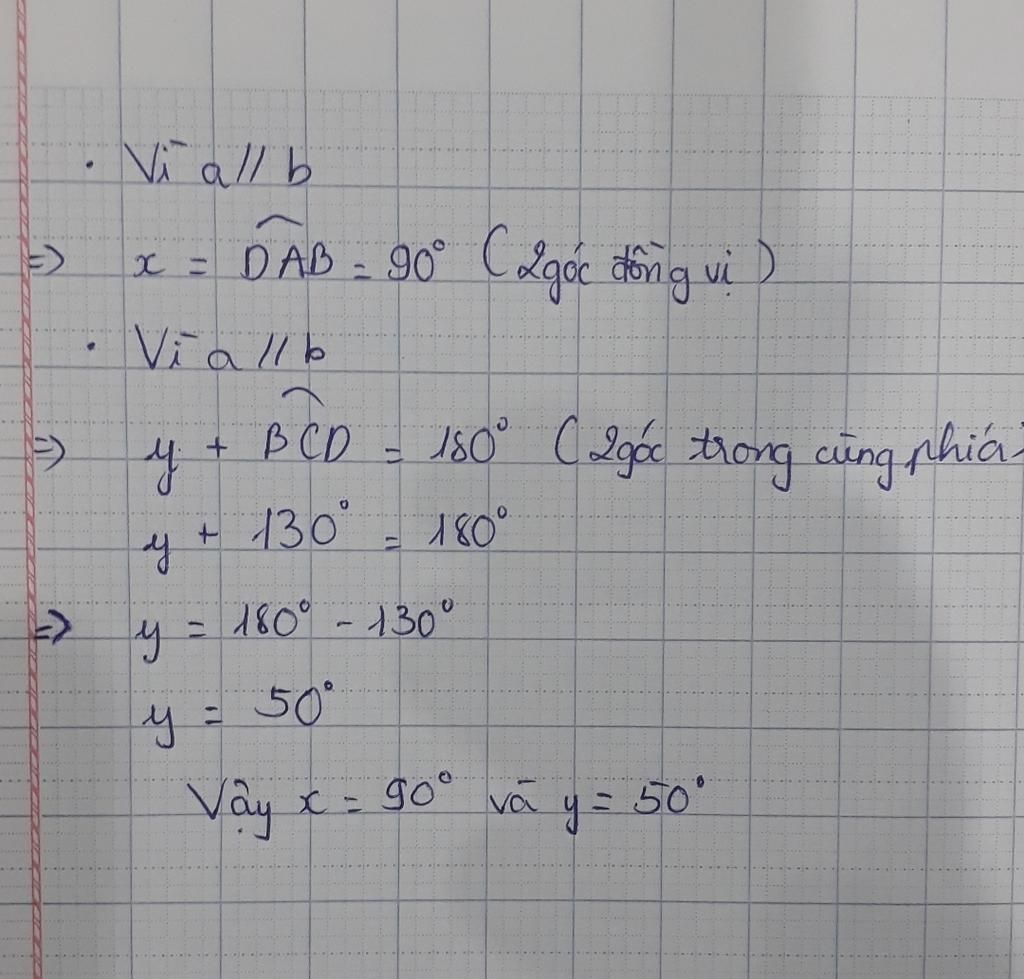 · Vì a // b
=> x = \widehat{DAB} = 90° (2góc đồng vị)
· Vì a // b
=> y + \widehat{BCD} = 180° (2góc trong cùng phía)
y + 130° = 180°
=> y = 180° - 130°
y = 50°
Vậy x = 90° và y = 50°